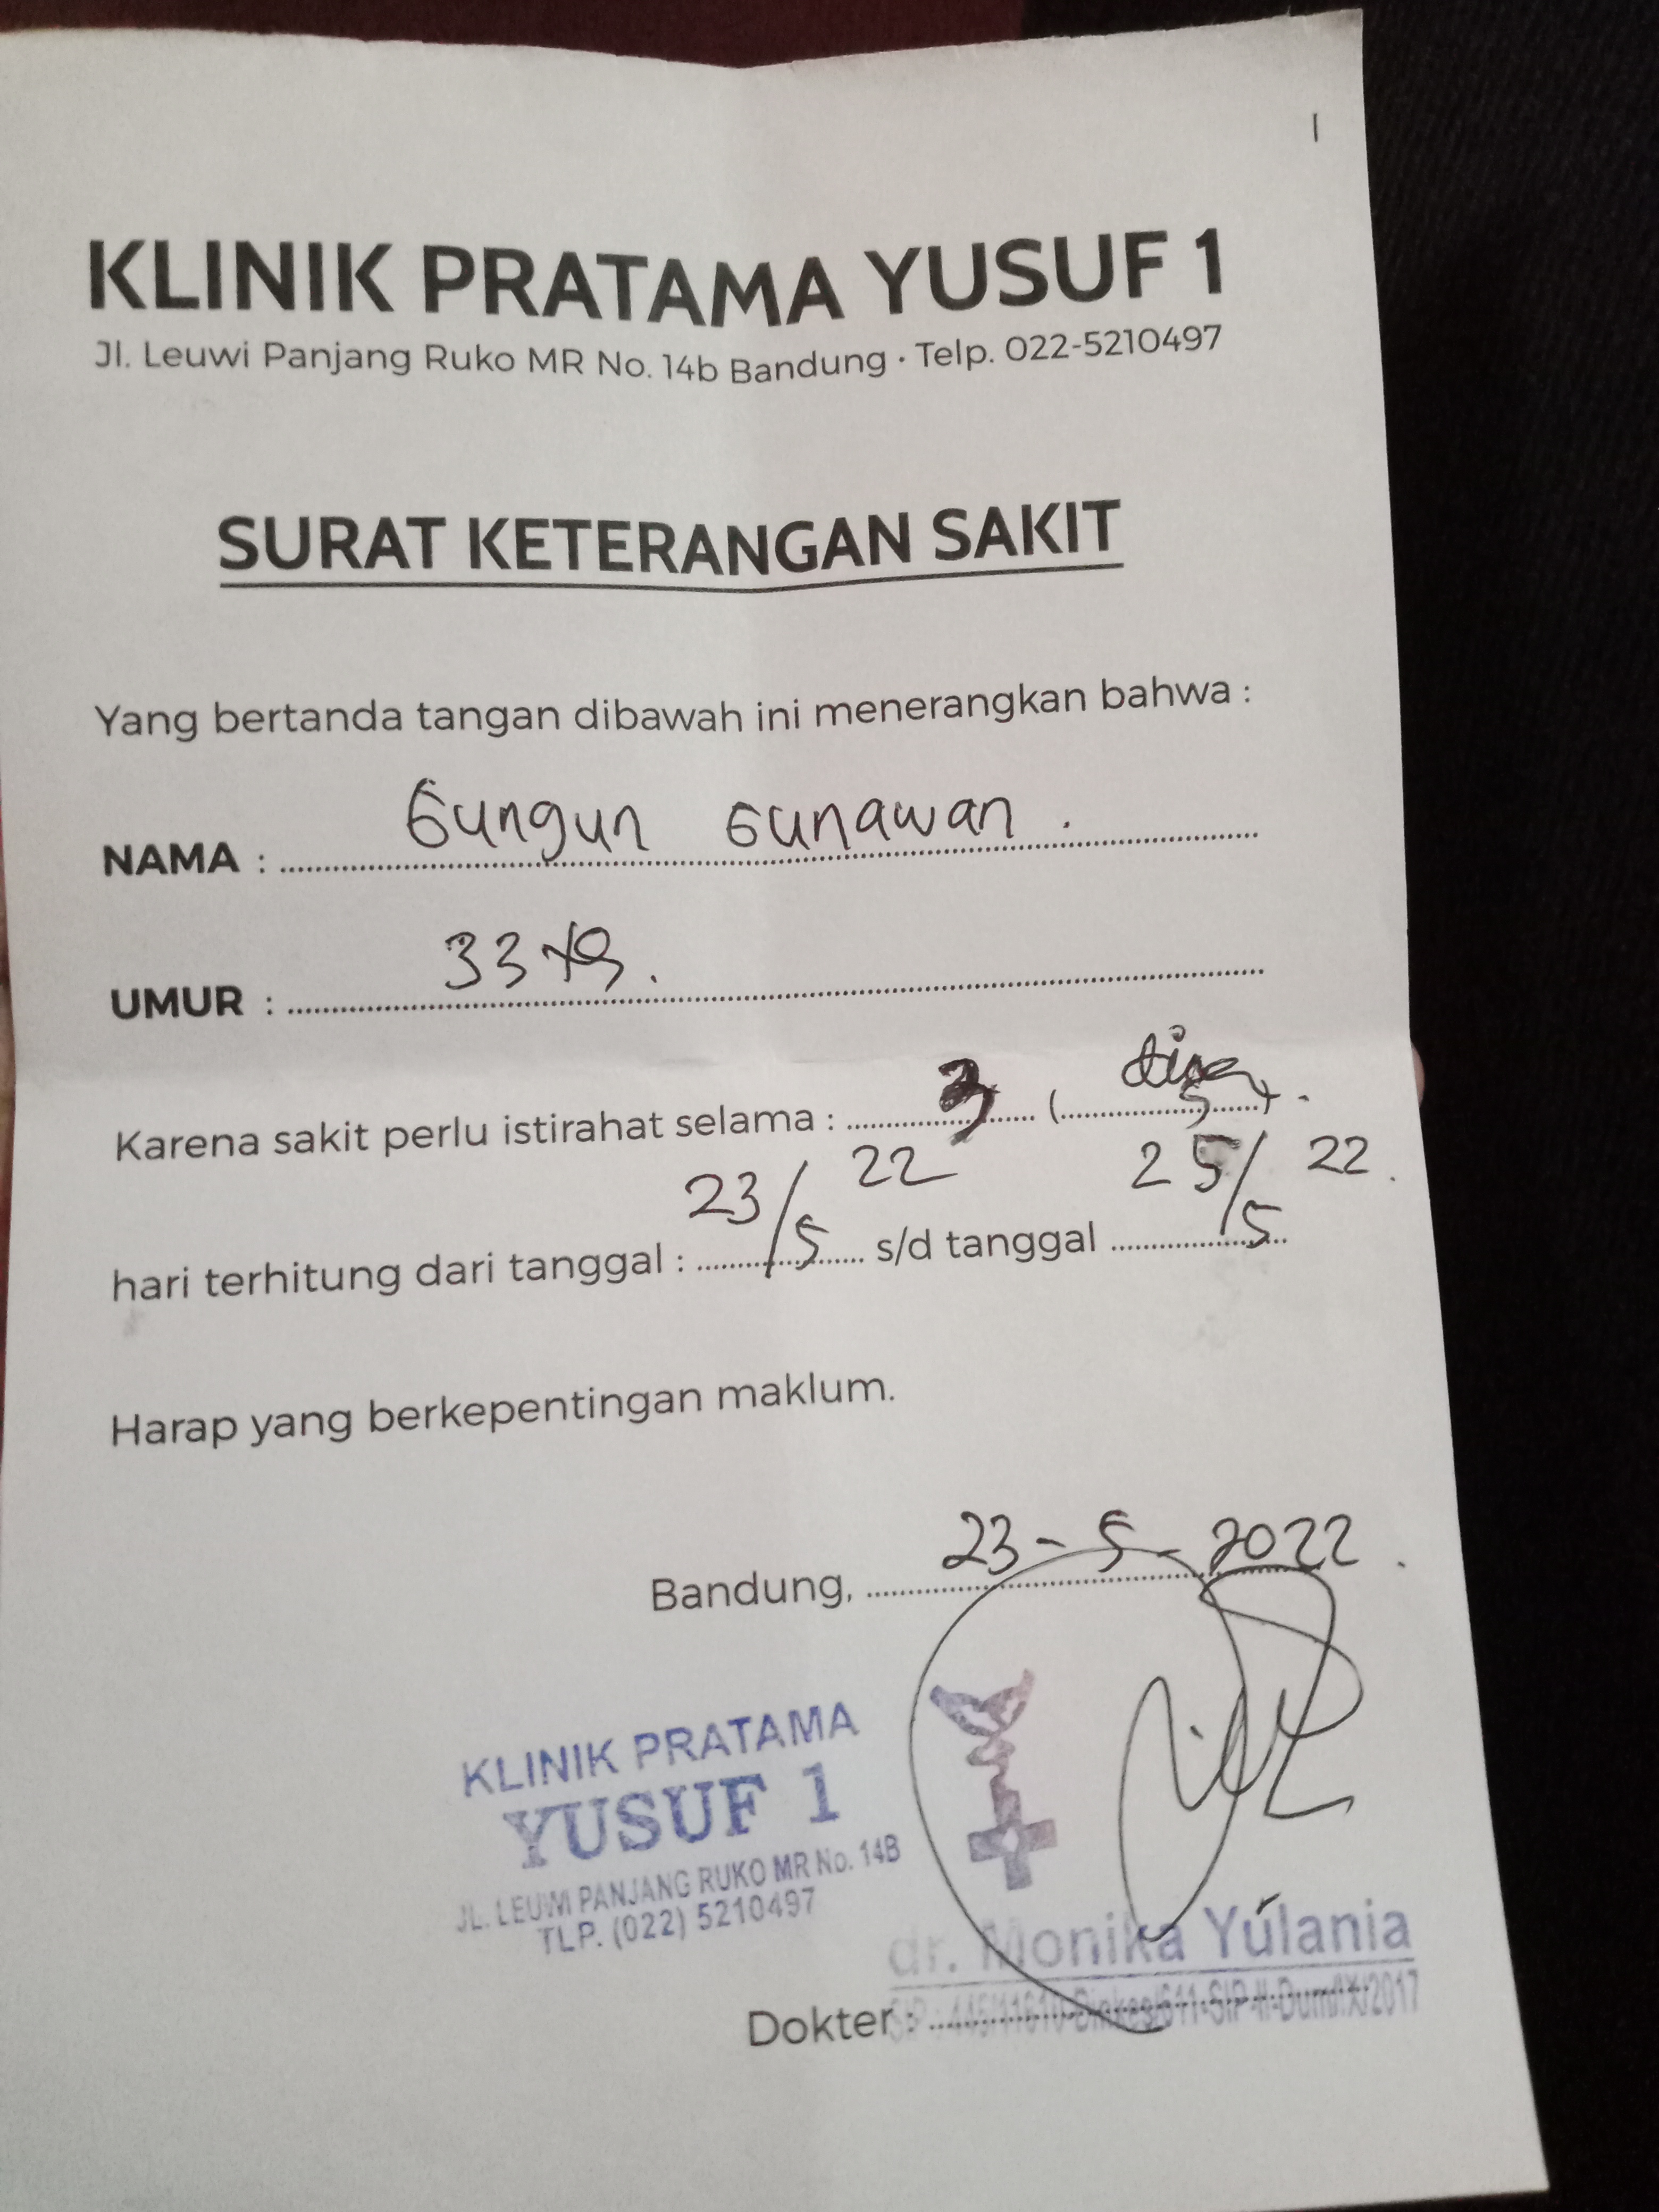 KLINIK PRATAMA YUSUF 1
Jl. Leuwi Panjang Ruko MR No. 14b Bandung · Telp. 022-5210497
SURAT KETERANGAN SAKIT
Yang bertanda tangan dibawah ini menerangkan bahwa :
NAMA : Gungun Gunawan .
UMUR : 33
Karena sakit perlu istirahat selama : 3 ( ) .
hari terhitung dari tanggal : 23/5 22 s/d tanggal 25/5 22 .
Harap yang berkepentingan maklum.
Bandung, 23-5-2022 .
KLINIK PRATAMA
YUSUF 1
JL. LEUWI PANJANG RUKO MR No. 14B
TLP. (022) 5210497
dr. Monika Yulania
Dokter :